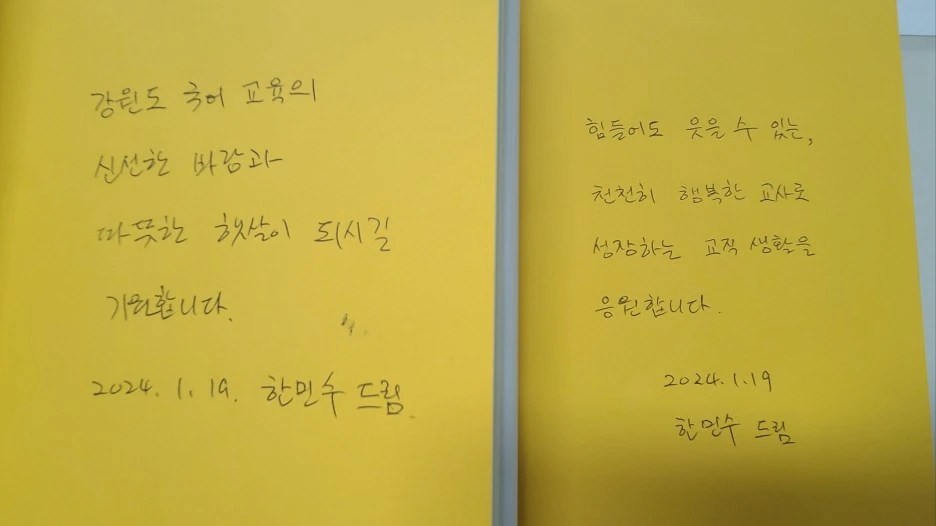 강원도 국어 교육의
신선한 바람과
따뜻한 햇살이 되시길
기원합니다.
2024. 1. 19. 한민수 드림.
힘들어도 웃을 수 있는,
천천히 행복한 교사로
성장하는 교직 생활을
응원합니다.
2024.1.19
한민수 드림